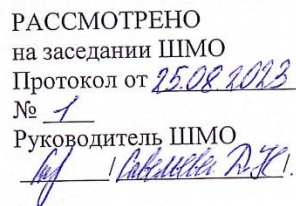 РАССМОТРЕНО
на заседании ШМО
Протокол от 25.08.2023
№ 1
Руководитель ШМО